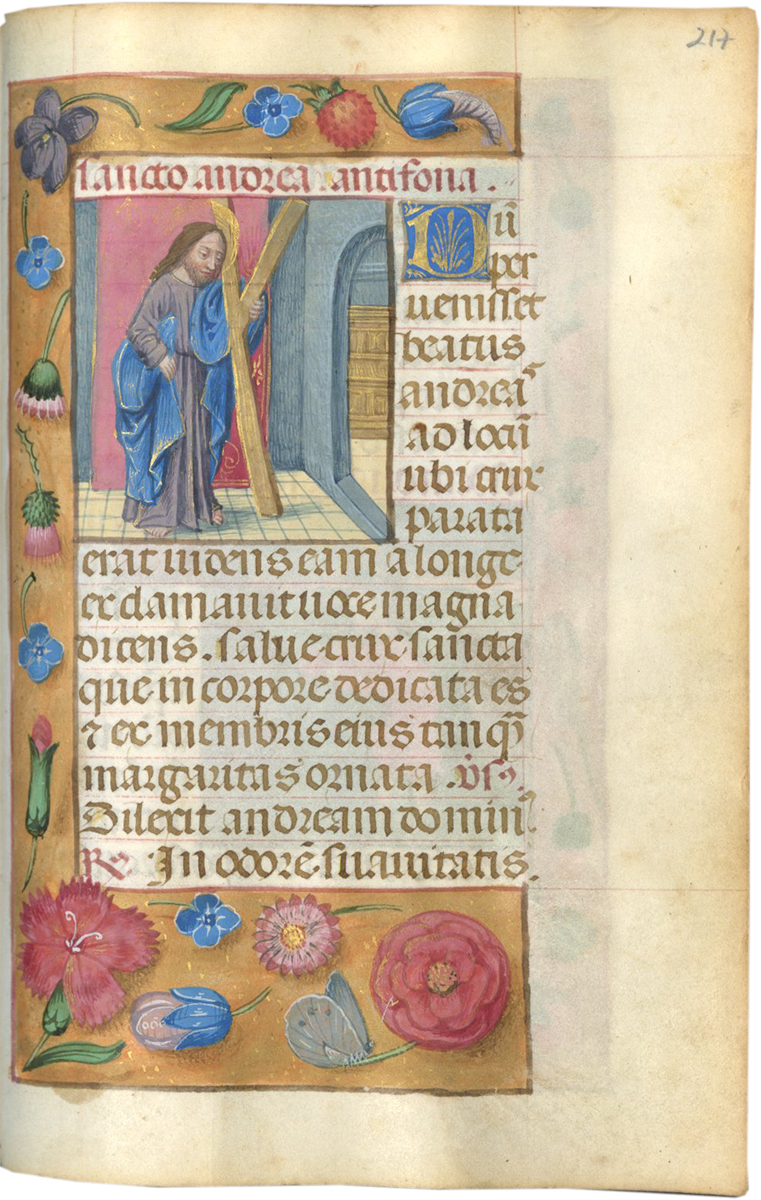 217
sancto andrea antifona.
Dū
per
uenisset
beatus
andreas
ad locū
ubi crux
parata
erat uidens eam a longe
exclamauit uoce magna
dicens. salue crux sancta
que in corpore dedicata es
⁊ ex membris eius tanqȝ
margaritas ornata. v̄sꝰ.
Dilexit andream domin⁹.
Rx. In odorē suauitatis.